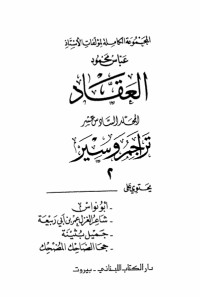 المجموعة الكاملة لمؤلفات الأستاذ
عباس محمود
العقاد
المجلد السادس عشر
تراجم وسير
٢
يحتوي على
- ابو نواس
- شاعر الغزل عمر بن أبي ربيعة
- جميل بثينة
- جحا الضاحك المضحك
دار الكتاب اللبناني - بيروت